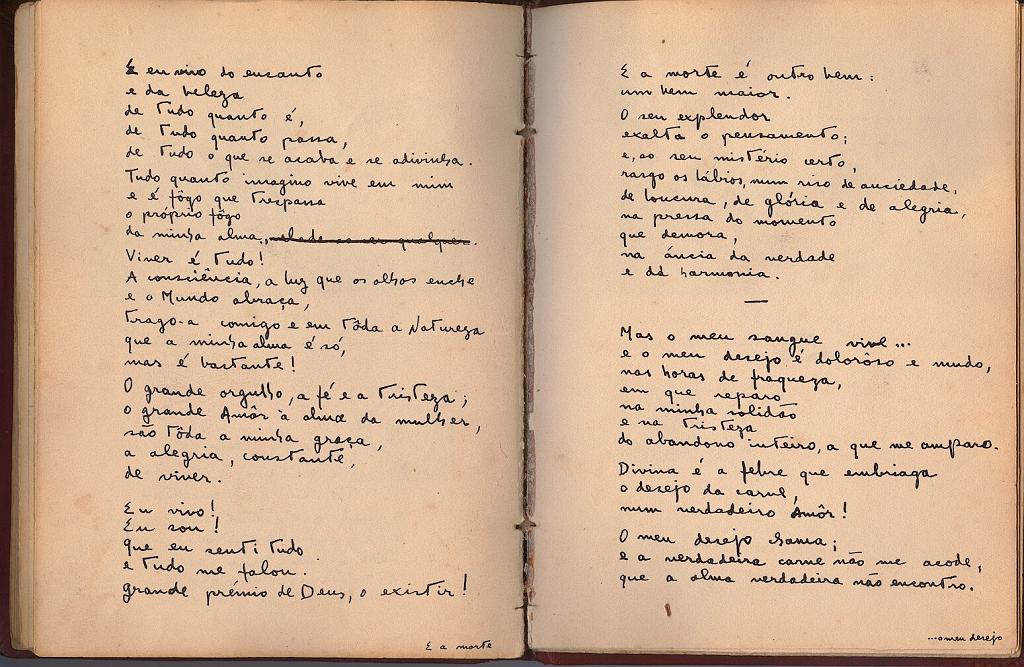 E eu vivo do encanto
e da beleza
de tudo quanto é,
de tudo quanto passa,
de tudo o que se acaba e se adivinha.
Tudo quanto imagino vive em mim
e é fôgo que trespassa
o próprio fôgo
da minha alma.
Viver é tudo!
A consciência, a luz que os olhos enche
e o Mundo abraça,
trago-a comigo e em tôda a Natureza
que a minha alma é só,
mas é bastante!
O grande orgulho, a fé e a tristeza;
o grande Amôr à alma da mulher,
são tôda a minha graça,
a alegria, constante,
de viver.
Eu vivo!
Eu sou!
que eu senti tudo
e tudo me falou.
grande prémio de Deus, o existir!
E a morte
E a morte é outro bem:
um bem maior.
O seu explendor
exalta o pensamento;
e, ao seu mistério certo,
rasgo os lábios, num riso de anciedade,
de loucura, de glória e de alegria,
na pressa do momento
que demora,
na ância da verdade
e dá harmonia.
—
Mas o meu sangue vive...
e o meu desejo é dolorôso e mudo,
nas horas de fraqueza,
em que reparo
na minha solidão
e na tristeza
do abandono inteiro, a que me amparo.
Divina é a febre que embriaga
o desejo da carne,
num verdadeiro Amôr!
O meu desejo chama;
e a verdadeira carne não me acode,
que a alma verdadeira não encontro.
...o meu desejo